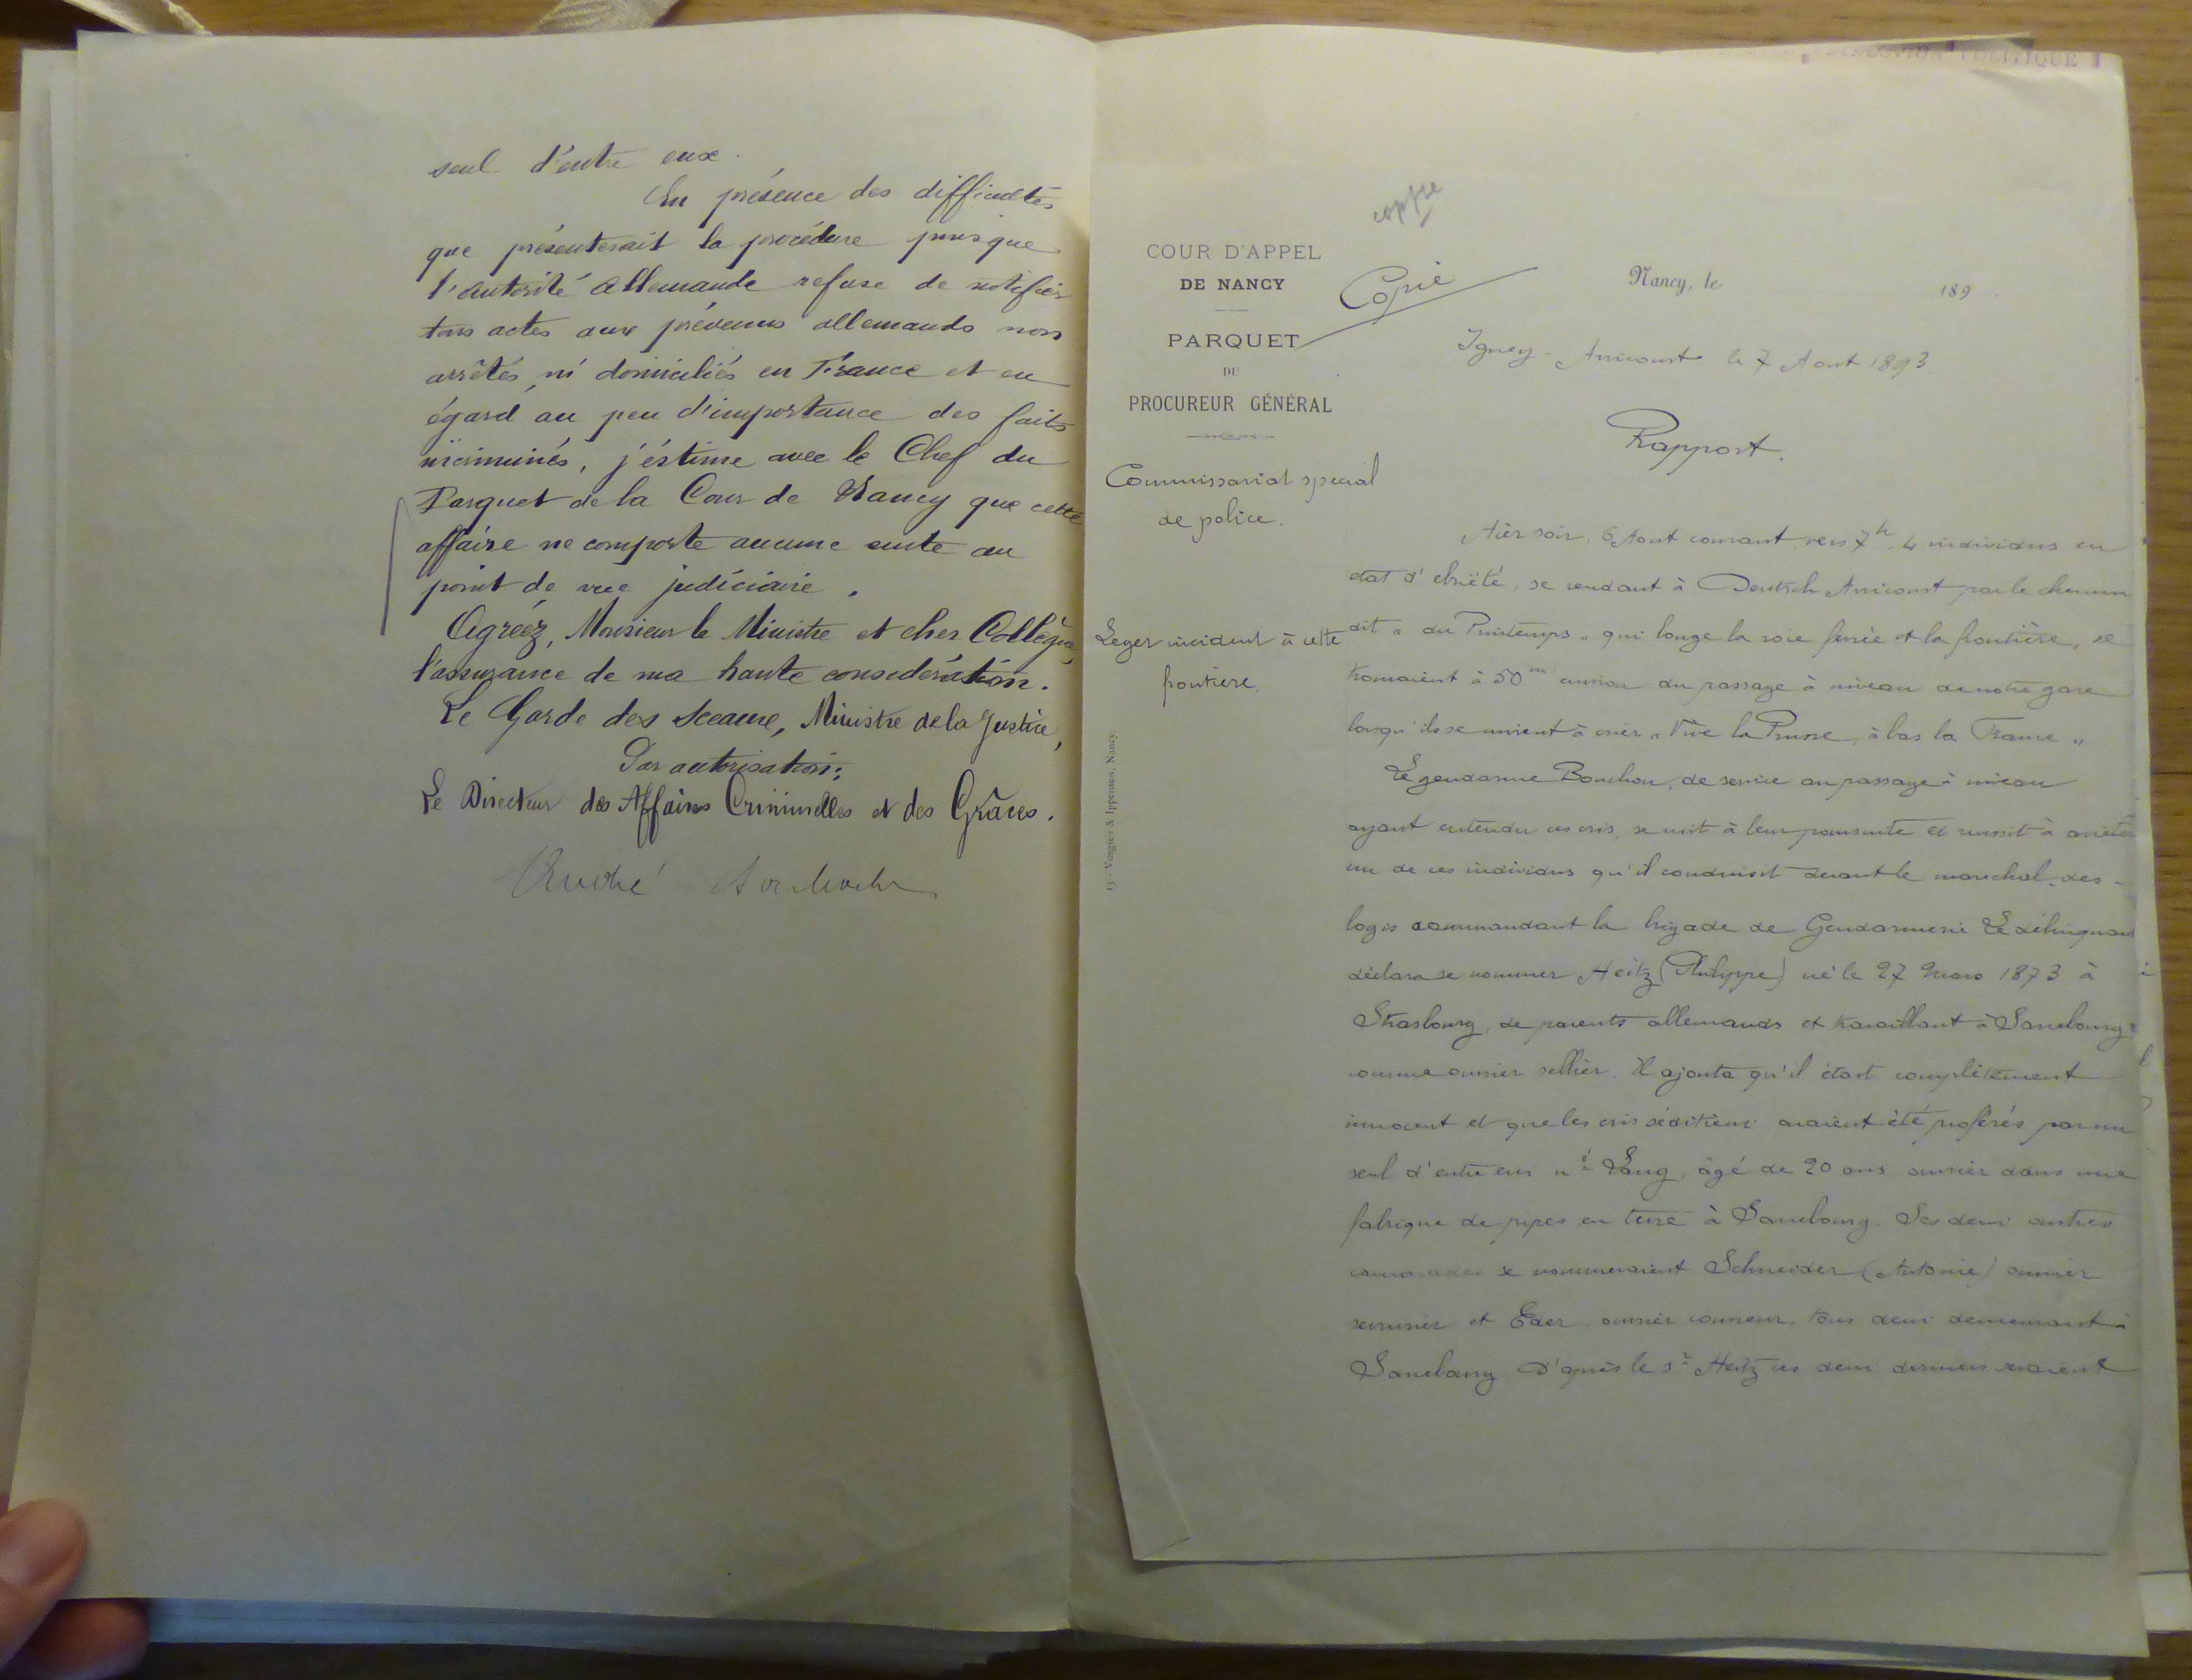 seul d'entre eux.
En présence des difficultés
que présenterait la procédure puisque
l'autorité allemande refuse de notifier
tous actes aux prévenus allemands non
arrêtés ni domiciliés en France et eu
égard au peu d'importance des faits
incriminés, j'estime avec le Chef du
Parquet de la Cour de Nancy que cette
affaire ne comporte aucune suite au
point de vue judiciaire.
Agréez, Monsieur le Ministre et cher Collègue,
l'assurance de ma haute considération.
Le Garde des Sceaux, Ministre de la Justice,
Par autorisation:
Le Directeur des Affaires Criminelles et des Grâces.
DIRECTION POLITIQUE
copie
COUR D'APPEL
DE NANCY
PARQUET
DU
PROCUREUR GÉNÉRAL
Copie
Nancy, le 189
Igney-Avricourt le 7 Aout 1893
Rapport.
Commissariat special
de police.
Leger incident à cette
frontière.
13 - Vosgien & Ippensen, Nancy.
Hier soir, 6 Aout courant, vers 7h, 4 individus en
état d'ebriété, se rendant à Deutsch Avricourt par le chemin
dit "du Printemps" qui longe la voie ferrée et la frontière, se
trouvaient à 50m environ du passage à niveau de notre gare
lorsqu'ils se mirent à crier "Vive la Prusse, à bas la France"
Le gendarme Bouchon, de service au passage à niveau
ayant entendu ces cris, se mit à leur poursuite et reussit à arrêter
un de ces individus qu'il conduisit devant le marechal-des-
logis commandant la brigade de Gendarmerie Le délinquant
déclara se nommer Heitz (Philippe) né le 27 Mars 1873 à
Strasbourg, de parents allemands et travaillant à Sarrebourg
comme ouvrier sellier. Il ajouta qu'il était complètement
innocent et que les cris séditieux avaient été proférés par un
seul d'entre eux né Lang, âgé de 20 ans ouvrier dans une
fabrique de pipes en terre à Sarrebourg. Ses deux autres
camarades se nommeraient Schneider (Antoine) ouvrier
serrurier et Eder, ouvrier couvreur, tous deux demeurant à
Sarrebourg D'après le sr Heitz ces deux derniers seraient